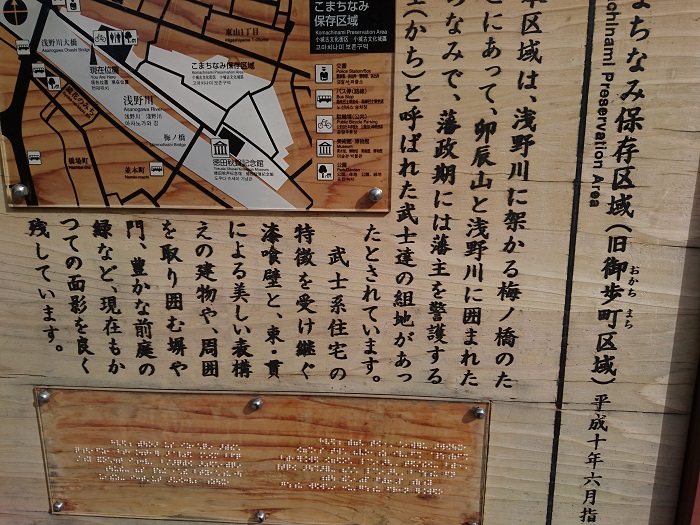 まちなみ保存区域（旧御歩町区域）平成十年六月指
おかち まち
chinami Preservation Area
本区域は、浅野川に架かる梅ノ橋のた
とにあって、卯辰山と浅野川に囲まれた
ちなみで、藩政期には藩主を警護する
士（かち）と呼ばれた武士達の組地があっ
たとされています。
武士系住宅の
特徴を受け継ぐ
漆喰壁と、束・貫
による美しい表構
えの建物や、周囲
を取り囲む塀や
門、豊かな前庭の
緑など、現在もか
つての面影を良く
残しています。
こまちなみ
保存区域
Komachinami Preservation Area
고마치나미 보존구역
東山1丁目
Higashiyama 1-chome
浅野川大橋
Asanogawa Ohashi Bridge
現在位置
You Are Here
こまちなみ保存区域
Komachinami Preservation Area
浅野川
Asanogawa River
梅ノ橋
Umenohashi Bridge
徳田秋聲記念館
橋場町
並木町
交番
Police Station/Box
バス停(路線)
Bus Stop
駐輪場(公共)
Public Bicycle Parking
美術館・博物館
Museum
公園